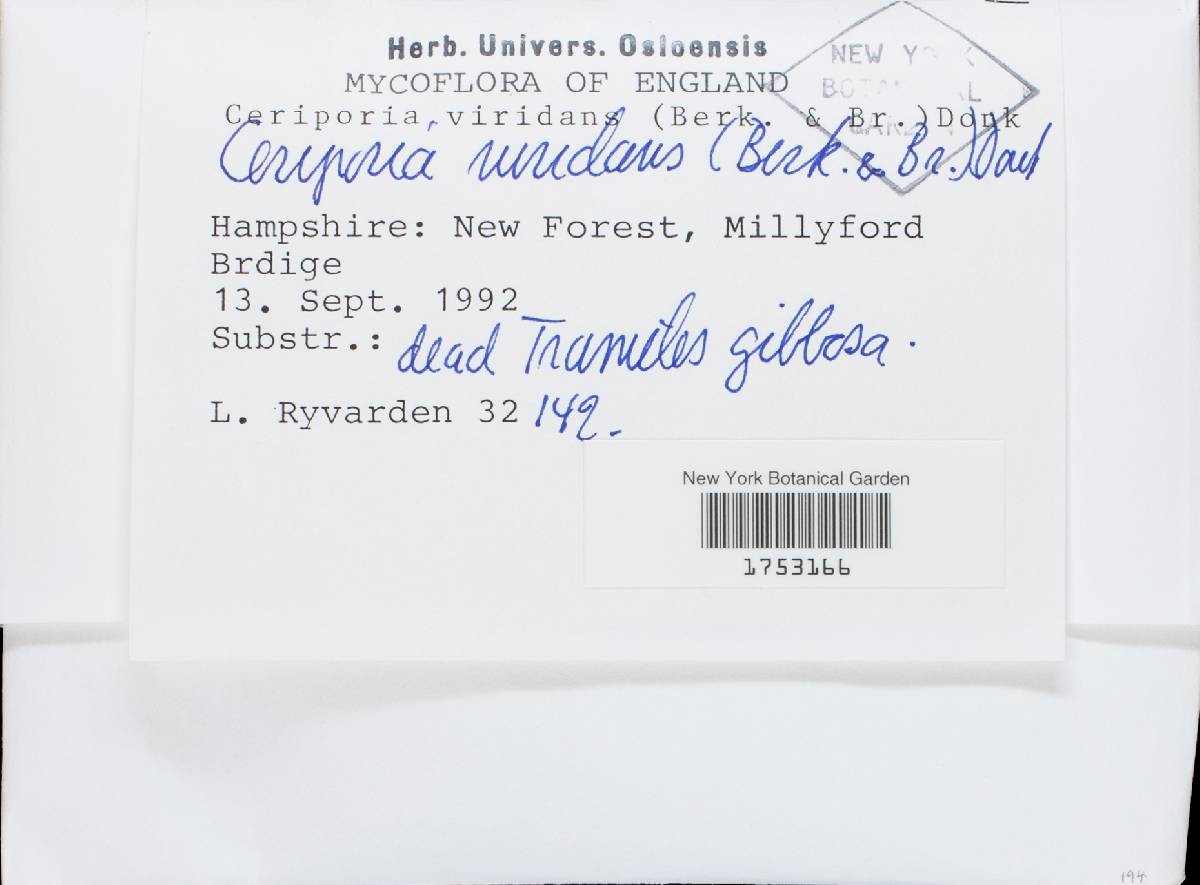 Herb. Univers. Osloensis
NEW YORK
BOTANICAL
GARDEN
MYCOFLORA OF ENGLAND
Ceriporia viridans (Berk. & Br.)Donk
Ceriporia viridans (Berk. & Br.)Donk
Hampshire: New Forest, Millyford
Brdige
13. Sept. 1992
Substr.: dead Trametes gibbosa.
L. Ryvarden 32 149.
New York Botanical Garden
1753166
194